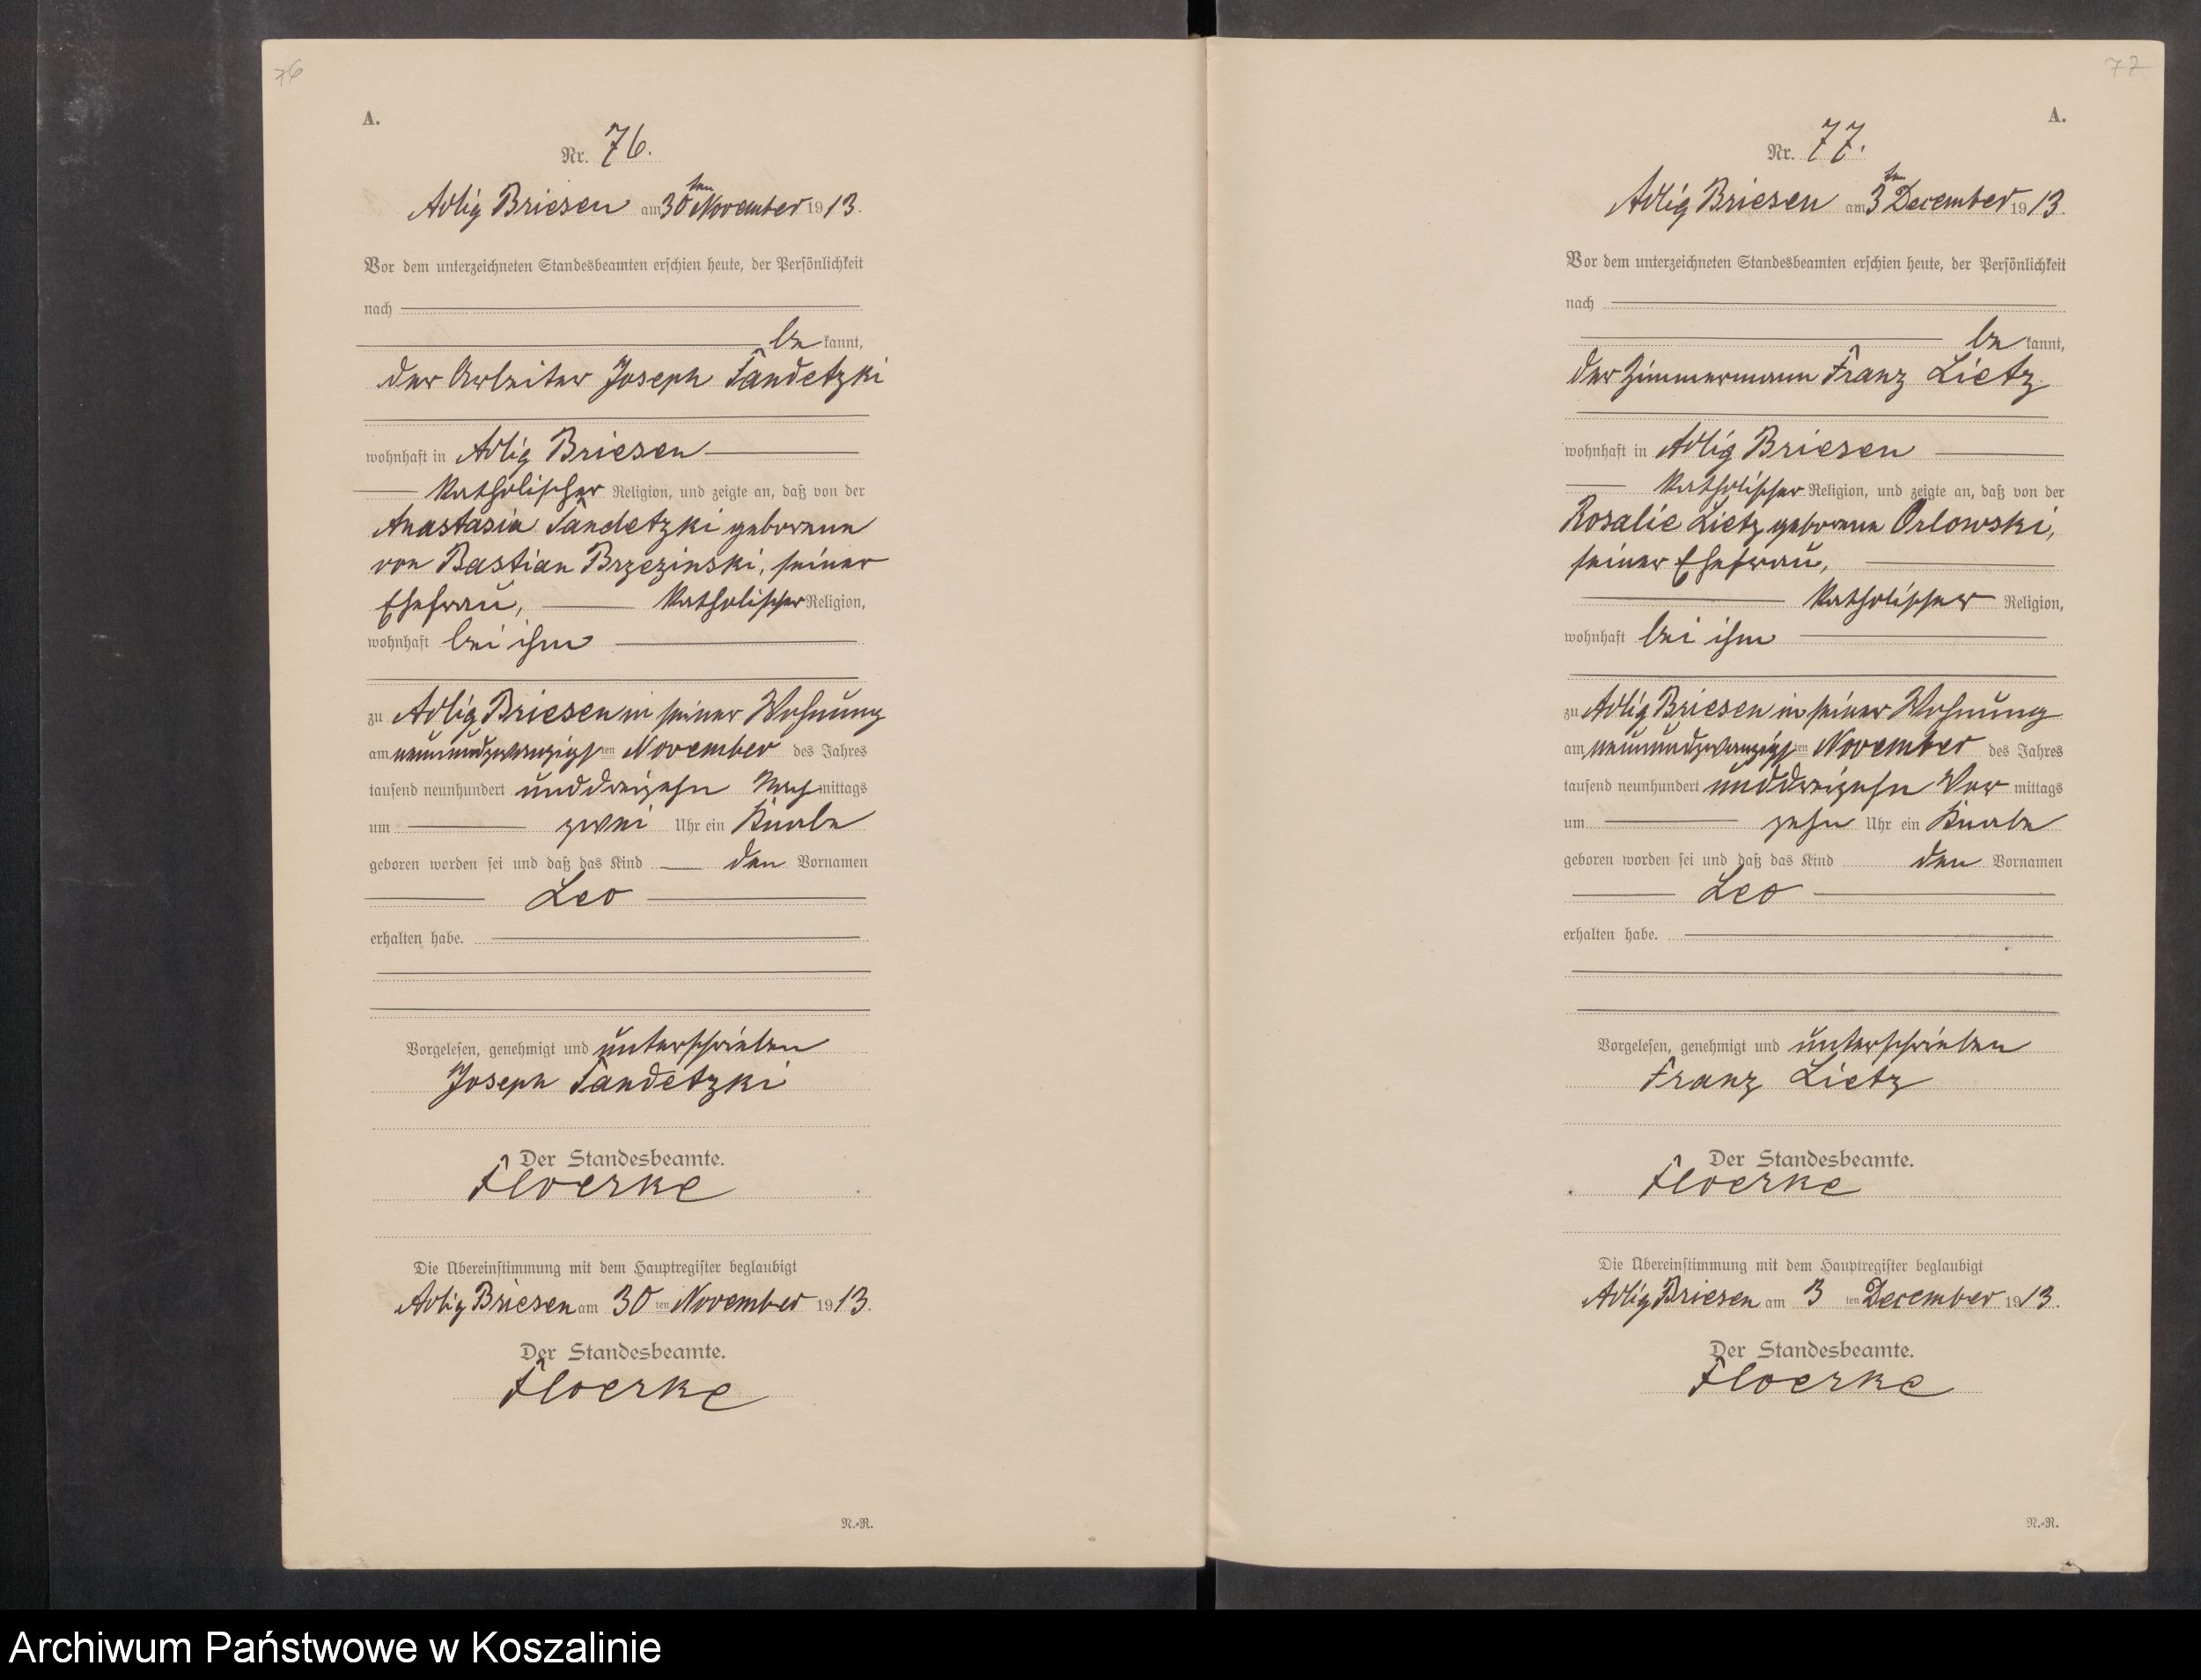 76
A.
Nr. 76.
Adlig Briesen am 30ten November 1913.
Vor dem unterzeichneten Standesbeamten erschien heute, der Persönlichkeit
nach
be kannt,
der Arbeiter Joseph Tandetzki
wohnhaft in Adlig Briesen
katholischer Religion, und zeigte an, daß von der
Anastasia Tandetzki geborenen
von Bastian Brzezinski, seiner
Ehefrau, katholischer Religion,
wohnhaft bei ihm
zu Adlig Briesen in seiner Wohnung
am neunundzwanzigsten November des Jahres
tausend neunhundert unddreizehn Nachmittags
um zwei Uhr ein Knabe
geboren worden sei und daß das Kind den Vornamen
Leo
erhalten habe.
Vorgelesen, genehmigt und unterschrieben
Joseph Tandetzki
Der Standesbeamte.
Floerke
Die Übereinstimmung mit dem Hauptregister beglaubigt
Adlig Briesen am 30ten November 1913.
Der Standesbeamte.
Floerke
N.-R.
77
A.
Nr. 77.
Adlig Briesen am 3ten December 1913.
Vor dem unterzeichneten Standesbeamten erschien heute, der Persönlichkeit
nach
be kannt,
der Zimmermann Franz Lietz
wohnhaft in Adlig Briesen
katholischer Religion, und zeigte an, daß von der
Rosalie Lietz geborenen Orlowski,
seiner Ehefrau,
katholischer Religion,
wohnhaft bei ihm
zu Adlig Briesen in seiner Wohnung
am neunundzwanzigsten November des Jahres
tausend neunhundert unddreizehn Vormittags
um zehn Uhr ein Knabe
geboren worden sei und daß das Kind den Vornamen
Leo
erhalten habe.
Vorgelesen, genehmigt und unterschrieben
Franz Lietz
Der Standesbeamte.
Floerke
Die Übereinstimmung mit dem Hauptregister beglaubigt
Adlig Briesen am 3ten December 1913.
Der Standesbeamte.
Floerke
N.-R.
Archiwum Państwowe w Koszalinie